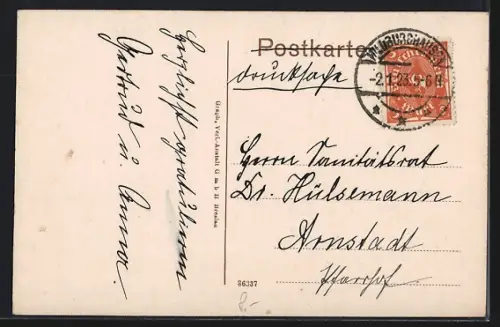 Herzlichst gratulieren
Gertrud u. Anna.
Graph. Verl.-Anstalt G m b H Breslau
86387
8.-
Postkarte
Drucksache
HILDBURGHAUSEN
-2.1.23.5-6 N
Herrn Sanitätsrat
Dr. Hülsemann
Arnstadt
Pfarrhof